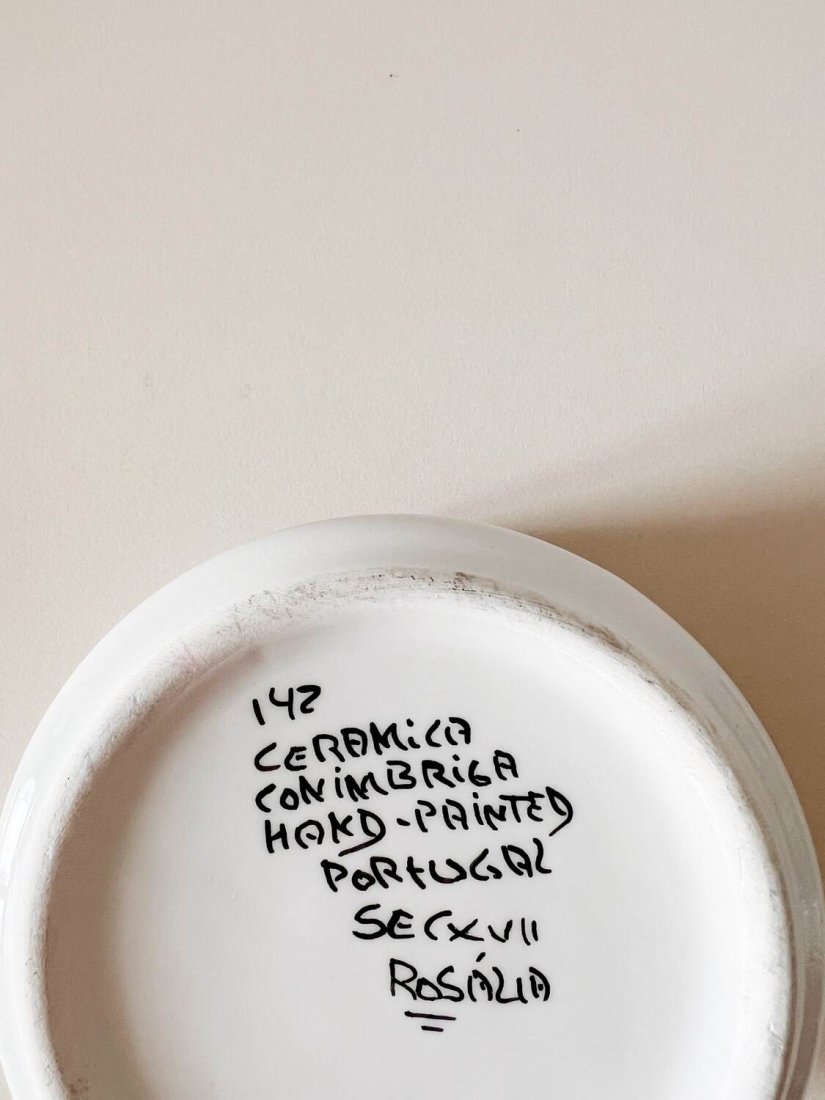 142
CERAMiCA
CONiMBRiGA
HAND-PAiNTED
PORtUGAL
SEC XVII
ROSÁLIA